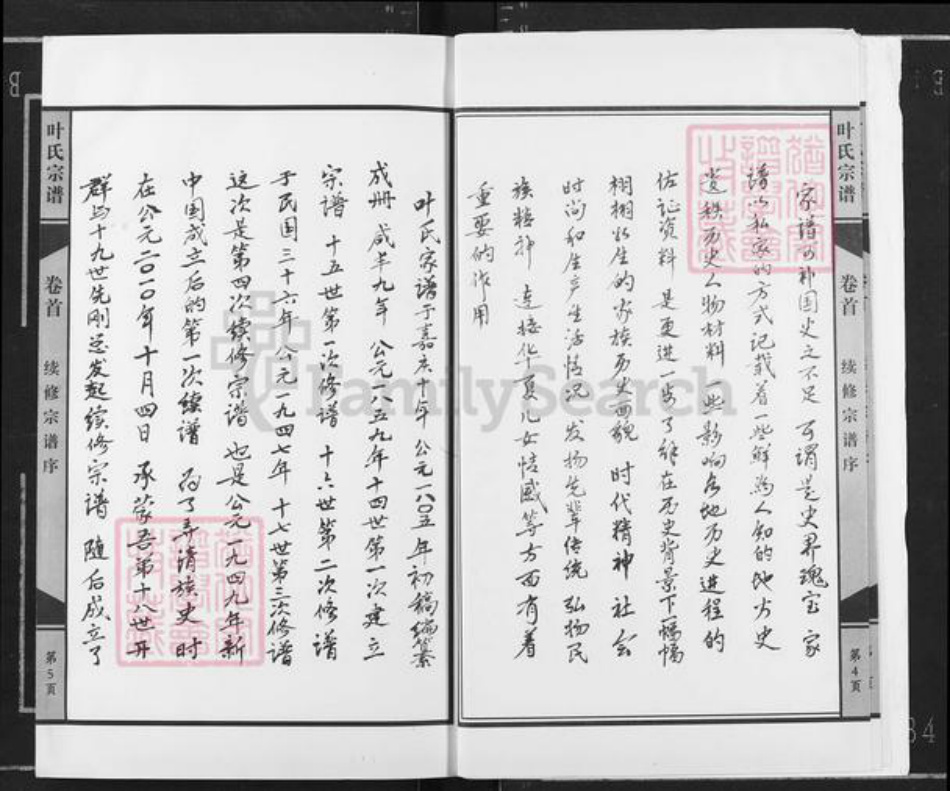 叶氏宗谱
卷首
续修宗谱序
第4页
家谱可补国史之不足 可谓是史界瑰宝 家
谱以私家的方式记载着一些鲜为人知的地方史
秩历史人物材料 一些影响各地历史进程的
佐证资料 是更进一步了解在历史背景下一幅幅
栩栩如生的家族历史面貌 时代精神 社会
时尚和生产生活情况 发扬先辈传统 弘扬民
族精神 连接华夏儿女情感等方面有着
重要的作用
叶氏家谱于嘉庆十年 公元一八0五年初稿编纂
成册 咸丰九年 公元一八五九年十四世第一次建立
宗谱 十五世第一次修谱 十六世第二次修谱
于民国三十六年 公元一九四七年 十七世第三次修谱
这次是第四次续修宗谱 也是公元一九四九年新
中国成立后的第一次续谱 为了弄清族史 时
在公元二0一0年十月四日 承蒙吾弟十八世开
群与十九世先刚总发起续修宗谱 随后成立了
叶氏宗谱
卷首
续修宗谱序
第5页
FamilySearch